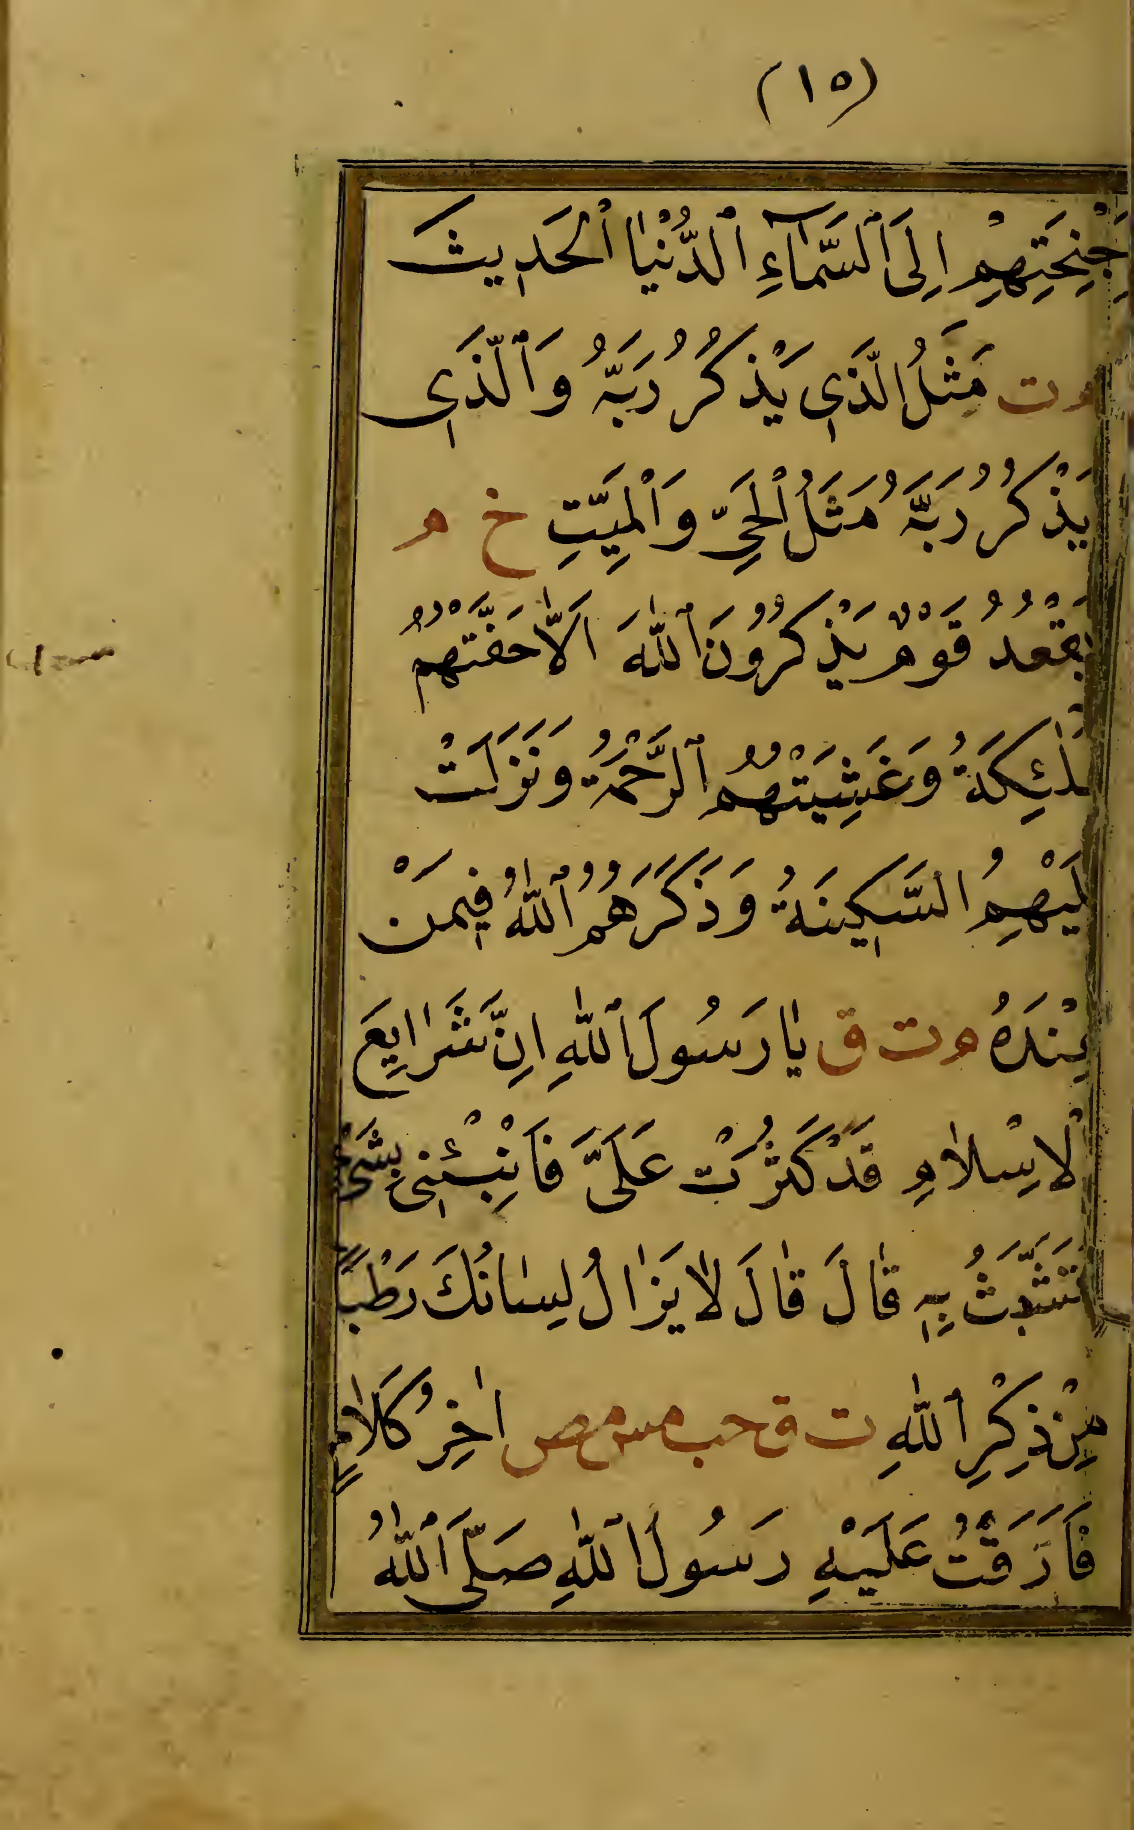 (١٥)
جْنِحَتِهِمْ اِلَى ٱلسَّمَآءِ ٱلدُّنْيٰا ٱلْحَدِيثَ
م ت مَثَلُ الَّذِى يَذْكُرُ رَبَّهُ وَٱلَّذِى
يَذْكُرُ رَبَّهُ مَثَلُ ٱلْحَىِّ وَٱلْمَيِّتِ خ م
يَقْعُدُ قَوْمٌ يَذْكُرُونَ ٱللّٰهَ اَلاّٰ حَفَّتْهُمُ
لٰئِكَةُ وَغَشِيَتْهُمُ ٱلرَّحْمَةُ وَنَزَلَتْ
لَيْهِمُ السَّكِينَةُ وَذَكَرَهُمُ ٱللّٰهُ فِيمَنْ
عِنْدَهُ م ت ق يٰا رَسُولَ ٱللّٰهِ اِنَّ شَرٰايِعَ
لْاِسْلاٰمِ قَدْ كَثُرَتْ عَلَىَّ فَاَنْبِئْنِى بِشَىْءٍ
تَشَبَّثُ بِهِ قٰالَ قٰالَ لاٰ يَزٰالُ لِسٰانُكَ رَطْبًا
مِنْ ذِكْرِ ٱللّٰهِ ت ق حب مس مص اٰخِرُ كَلاٰمٍ
فَارَقْتُ عَلَيْهِ رَسُولَ ٱللّٰهِ صَلَّى ٱللّٰهُ